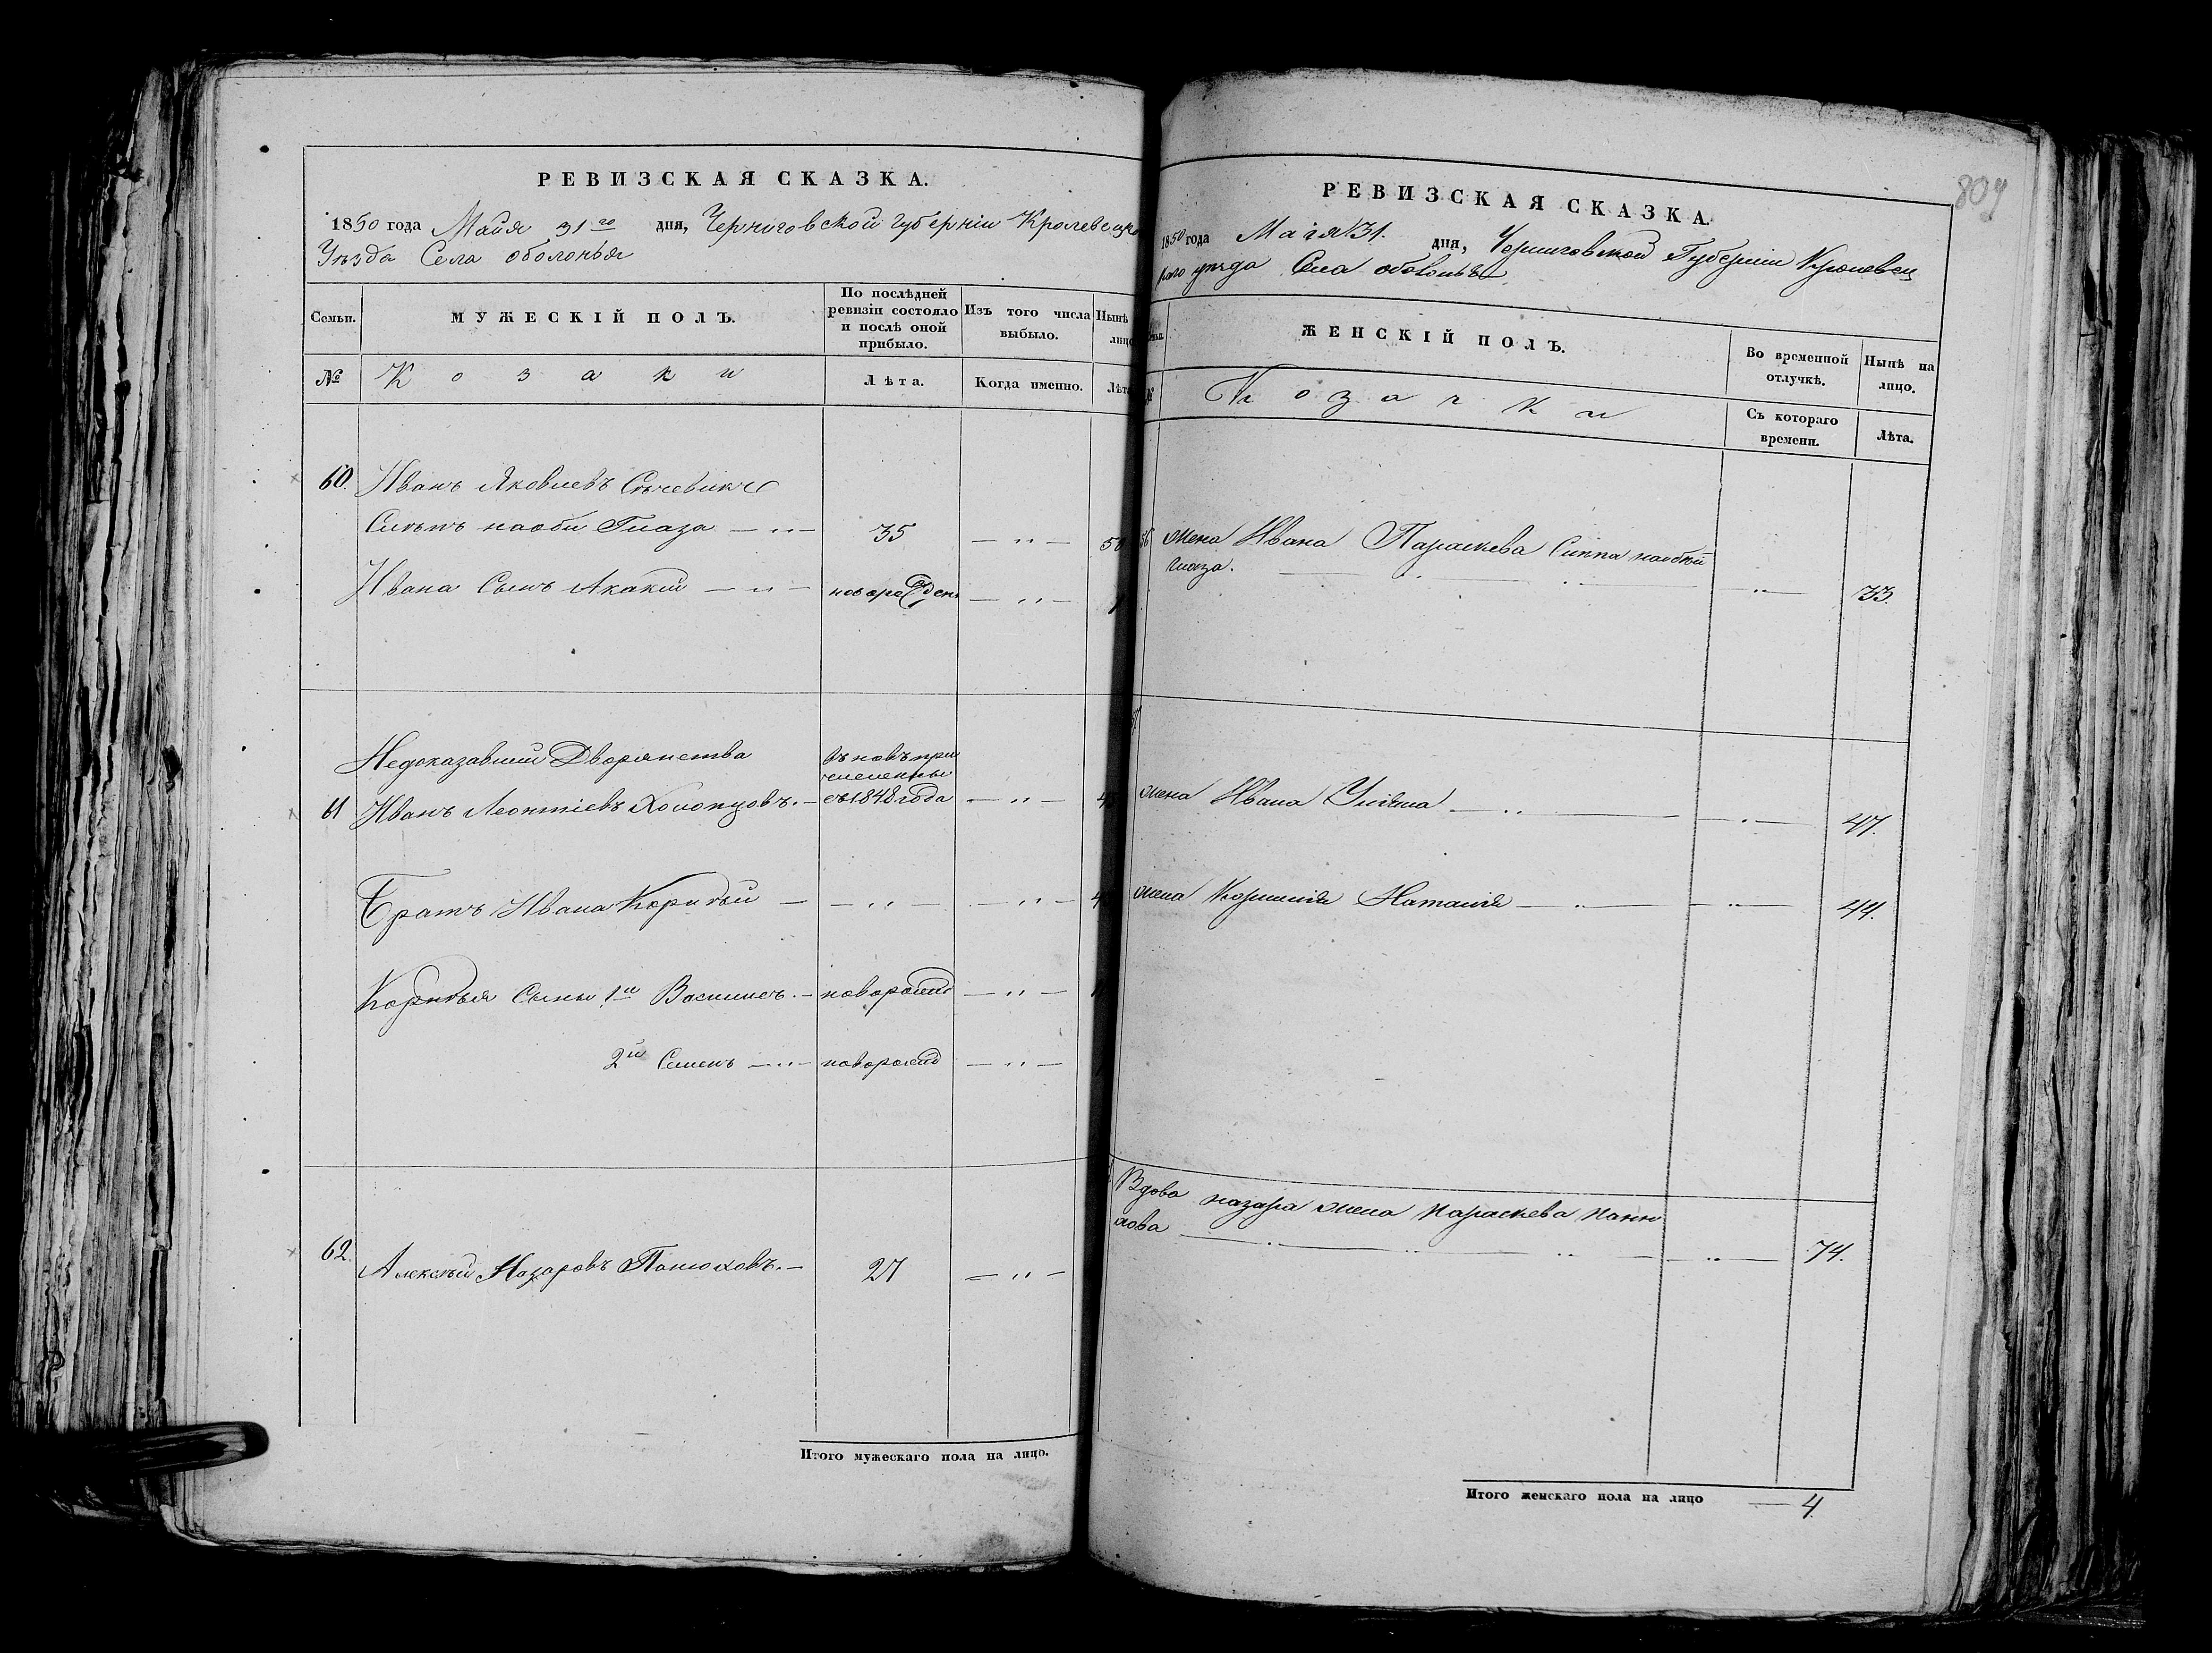 РЕВИЗСКАЯ СКАЗКА.
1850 года Майя 31го дня, Черниговской Губерніи Кролевецко
Уѣзда Села оболонья
Семьи.
МУЖЕСКІЙ ПОЛЪ.
По послѣдней ревизіи состояло и послѣ оной прибыло.
Изъ того числа выбыло.
Нынѣ
лицо
№
Козаки
Лѣта.
Когда именно.
Лѣта
60. Иванъ Яковлевъ
Слѣпъ наоби Глаза — „ — 35 — „ — 50
Ивана Сынъ Акакій — „ — новорожден — „ — 1
Недоказавший Дворянства
Въновь при
численны
61 Иванъ Леонтіевъ Холопцовъ. — съ 1848 года — „ —
Братъ Ивана Корнѣй — — „ — — „ —
Корнѣя Сыны 1й Василій. — новорожд — „ —
2й Семенъ — „ — новорожд — „ —
62. Алексѣй Назаровъ Панюховъ. — 27 — „ —
Итого мужескаго пола на лицо.
809
РЕВИЗСКАЯ СКАЗКА.
1850 года Маія 31. дня, Черниговской Губерніи Кролевец
каго уѣзда Села оболонья
ЖЕНСКІЙ ПОЛЪ.
Во временной отлучкѣ.
Нынѣ на лицо.
№
Козачки
Съ котораго времени.
Лѣта.
жена Ивана Параскева Слѣпа наобѣи
глаза. — „ — 33.
жена Ивана Уліяна — „ — — „ — 47.
жена Корнилія Наталія — „ — — „ — 44.
Вдова назара жена параскева Паню
хова — „ — — „ — 74.
Итого женскаго пола на лицо — 4.